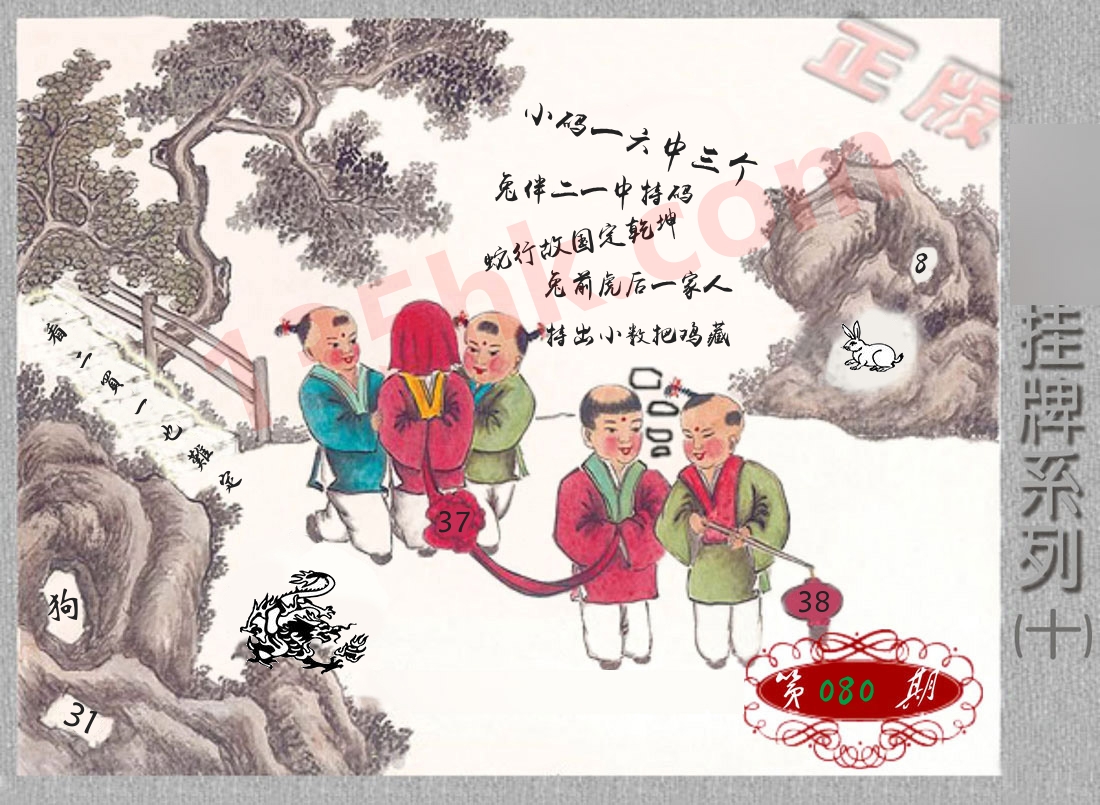 正版
小码一六中三个
兔伴二一中特码
蛇行故国定乾坤
兔前虎后一家人
特出小数把鸡藏
8
挂牌系列(十)
看二買一也難
37
38
狗
31
第080期